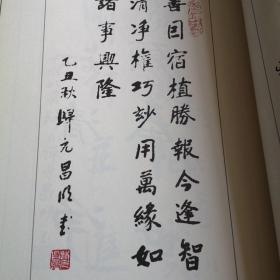 善因宿植勝報今逢智
清净權巧妙用萬緣如
諸事興隆
乙丑秋歸元昌明書